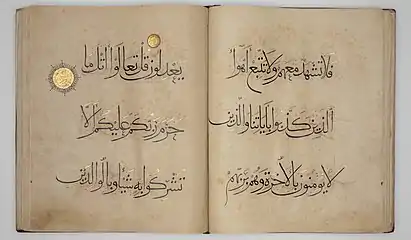 فلا تشهد معهم ولا تتبع أهواء
الذين كذبوا بآياتنا والذين
لا يؤمنون بالآخرة وهم بربهم
يعدلون قل تعالوا أتل ما
حرم ربكم عليكم ألا
تشركوا به شيئا وبالوالدين